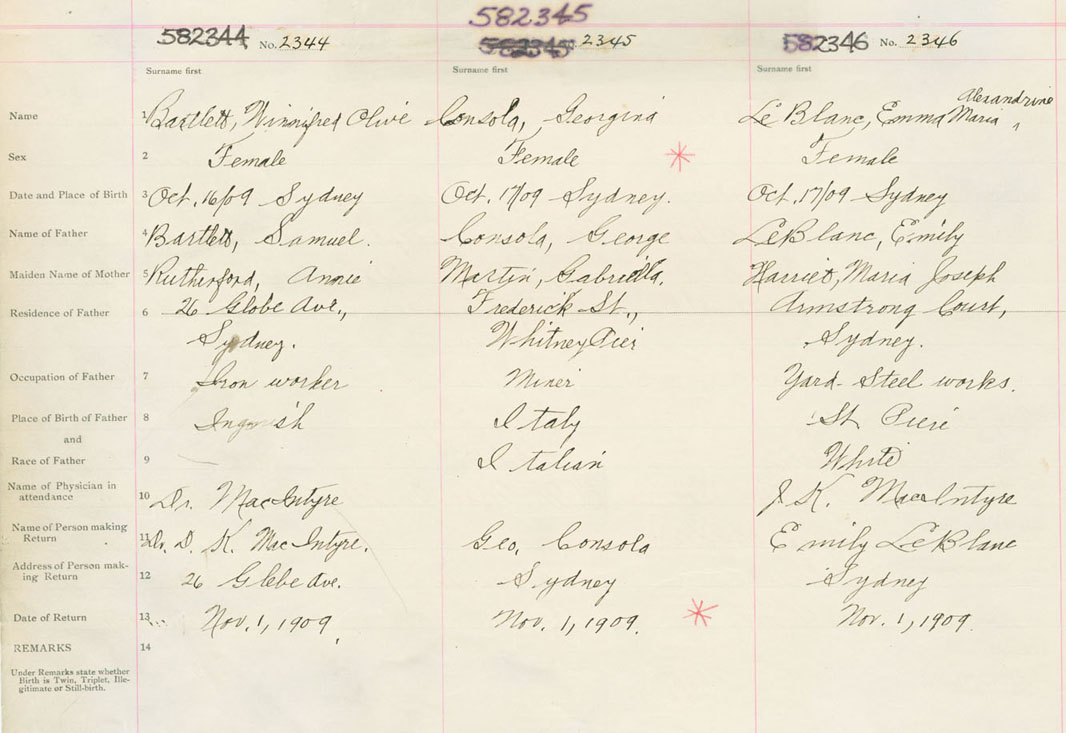 582345
582344 No. 2344 582345 No. 2345 582346 No. 2346
Surname first Surname first Surname first
Alexandrine
Name 1 Bartlett, Winnifred Olive Consola, Georgina LeBlanc, Emma Maria ^
Sex 2 Female Female Female
Date and Place of Birth 3 Oct. 16/09 Sydney Oct. 17/09 Sydney. Oct. 17/09 Sydney
Name of Father 4 Bartlett, Samuel. Consola, George LeBlanc, Emily
Maiden Name of Mother 5 Rutherford, Annie Martin, Gabriella. Harriet, Maria Joseph
Residence of Father 6 26 Globe Ave., Frederick St., Armstrong Court,
Sydney. Whitney Pier Sydney.
Occupation of Father 7 Iron worker Miner Yard Steel works.
Place of Birth of Father 8 Italy St Pieri
and
Race of Father 9 Italian White
Name of Physician in
attendance 10 Dr. MacIntyre J. K. MacIntyre
Name of Person making
Return 11 Dr. D. K. MacIntyre. Geo. Consola Emily LeBlanc
Address of Person mak-
ing Return 12 26 Glebe Ave. Sydney Sydney
Date of Return 13 Nov. 1, 1909. Nov. 1, 1909. Nov. 1, 1909.
REMARKS 14
Under Remarks state whether
Birth is Twin, Triplet, Ille-
gitimate or Still-birth.